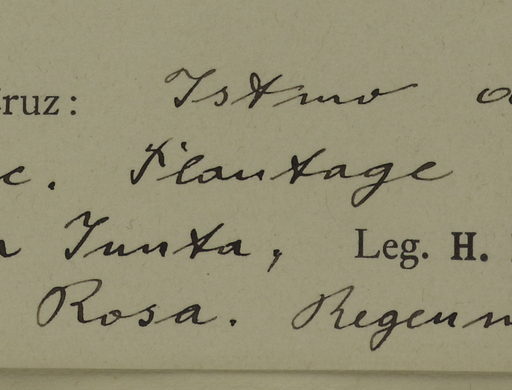 cruz: Istmo
c. Plantage
Junta, Leg. H.
Rosa. Regenw